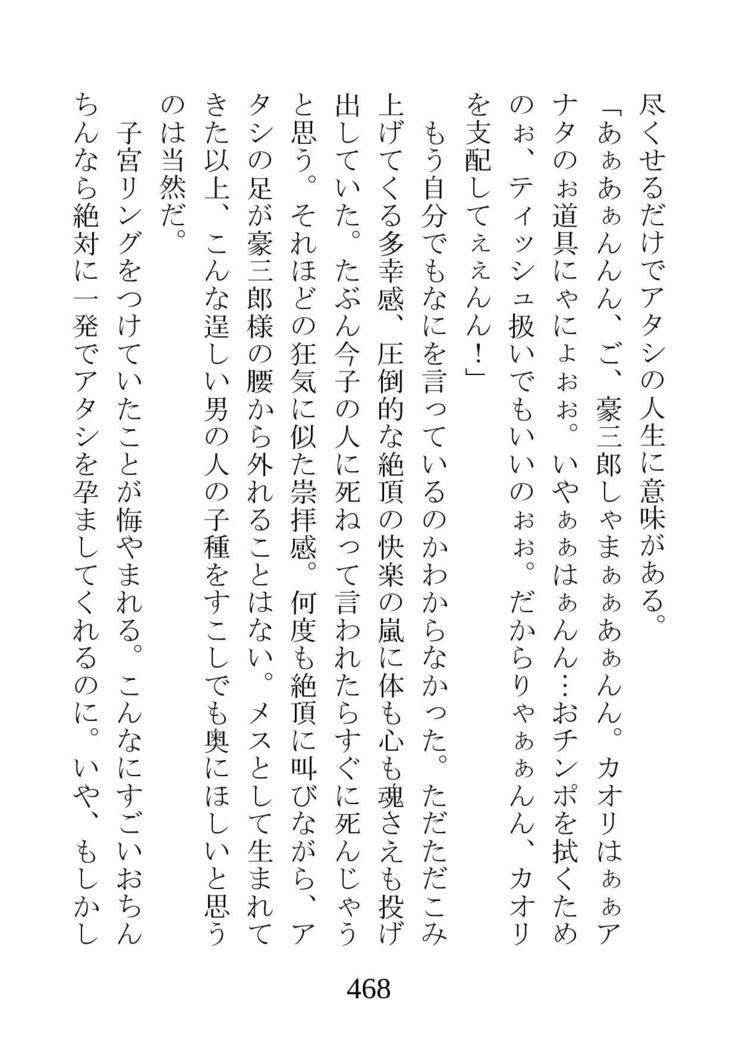 尽くせるだけでアタシの人生に意味がある。
「あぁあぁんんん、ご、豪三郎しゃまぁぁあぁんん。カオリはぁぁア
ナタのぉ道具にゃにょぉぉ。いやぁぁはぁんん…おチンポを拭くため
のぉ、ティッシュ扱いでもいいのぉぉ。だからりゃぁぁんん、カオリ
を支配してぇぇんん！」
　もう自分でもなにを言っているのかわからなかった。ただただこみ
上げてくる多幸感、圧倒的な絶頂の快楽の嵐に体も心も魂さえも投げ
出していた。たぶん今子の人に死ねって言われたらすぐに死んじゃう
と思う。それほどの狂気に似た崇拝感。何度も絶頂に叫びながら、ア
タシの足が豪三郎様の腰から外れることはない。メスとして生まれて
きた以上、こんな逞しい男の人の子種をすこしでも奥にほしいと思う
のは当然だ。
　子宮リングをつけていたことが悔やまれる。こんなにすごいおちん
ちんなら絶対に一発でアタシを孕ましてくれるのに。いや、もしかし
468